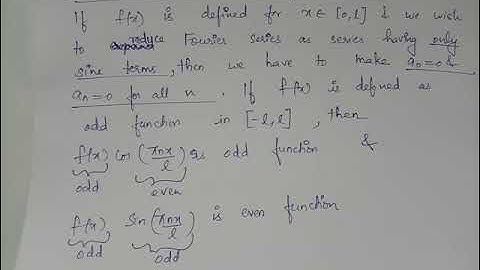 If f(x) is defined for x ∈ [0, l] & we wish
to reduce Fourier series as series having only
sine terms, then we have to make a₀ = 0 &
aₙ = 0 for all n. If f(x) is defined as
odd function in [-l, l], then
f(x) cos (πnx/l) is odd function &
odd even
f(x) sin (πnx/l) is even function
odd odd